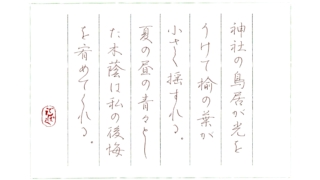 神社の鳥居が光を
うけて楡の葉が
小さく揺すれる。
夏の昼の青々とし
た木蔭は私の後悔
を宥めてくれる。